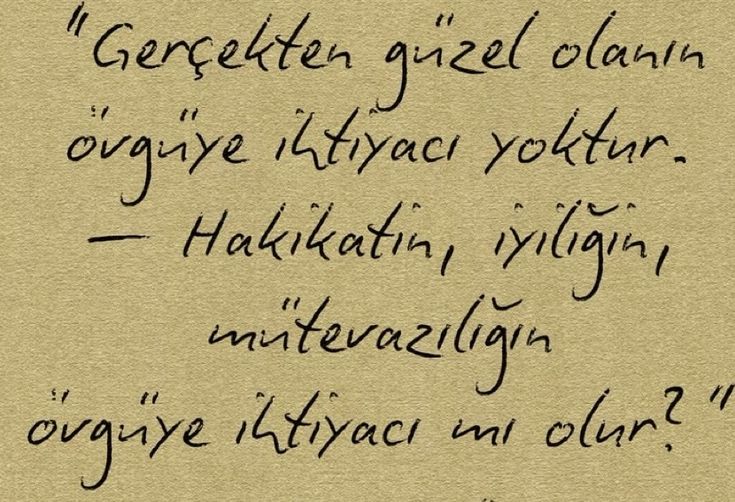 "Gerçekten güzel olanın
övgüye ihtiyacı yoktur.
— Hakikatin, iyiliğin,
mütevazılığın
övgüye ihtiyacı mı olur?"